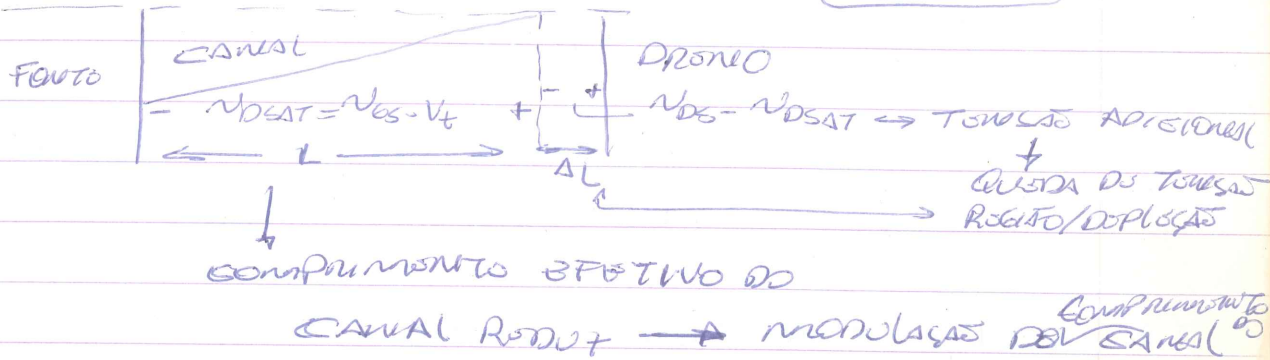 FONTE
CANAL
DRENO
- VDSAT = VGS - Vt +
- +
VDS - VDSAT ↔ TENSÃO ADICIONAL
L
ΔL
QUEDA DE TENSÃO
REGIÃO/DEPLEÇÃO
COMPRIMENTO EFETIVO DO
CANAL REDUZ → MODULAÇÃO DO COMPRIMENTO DO CANAL